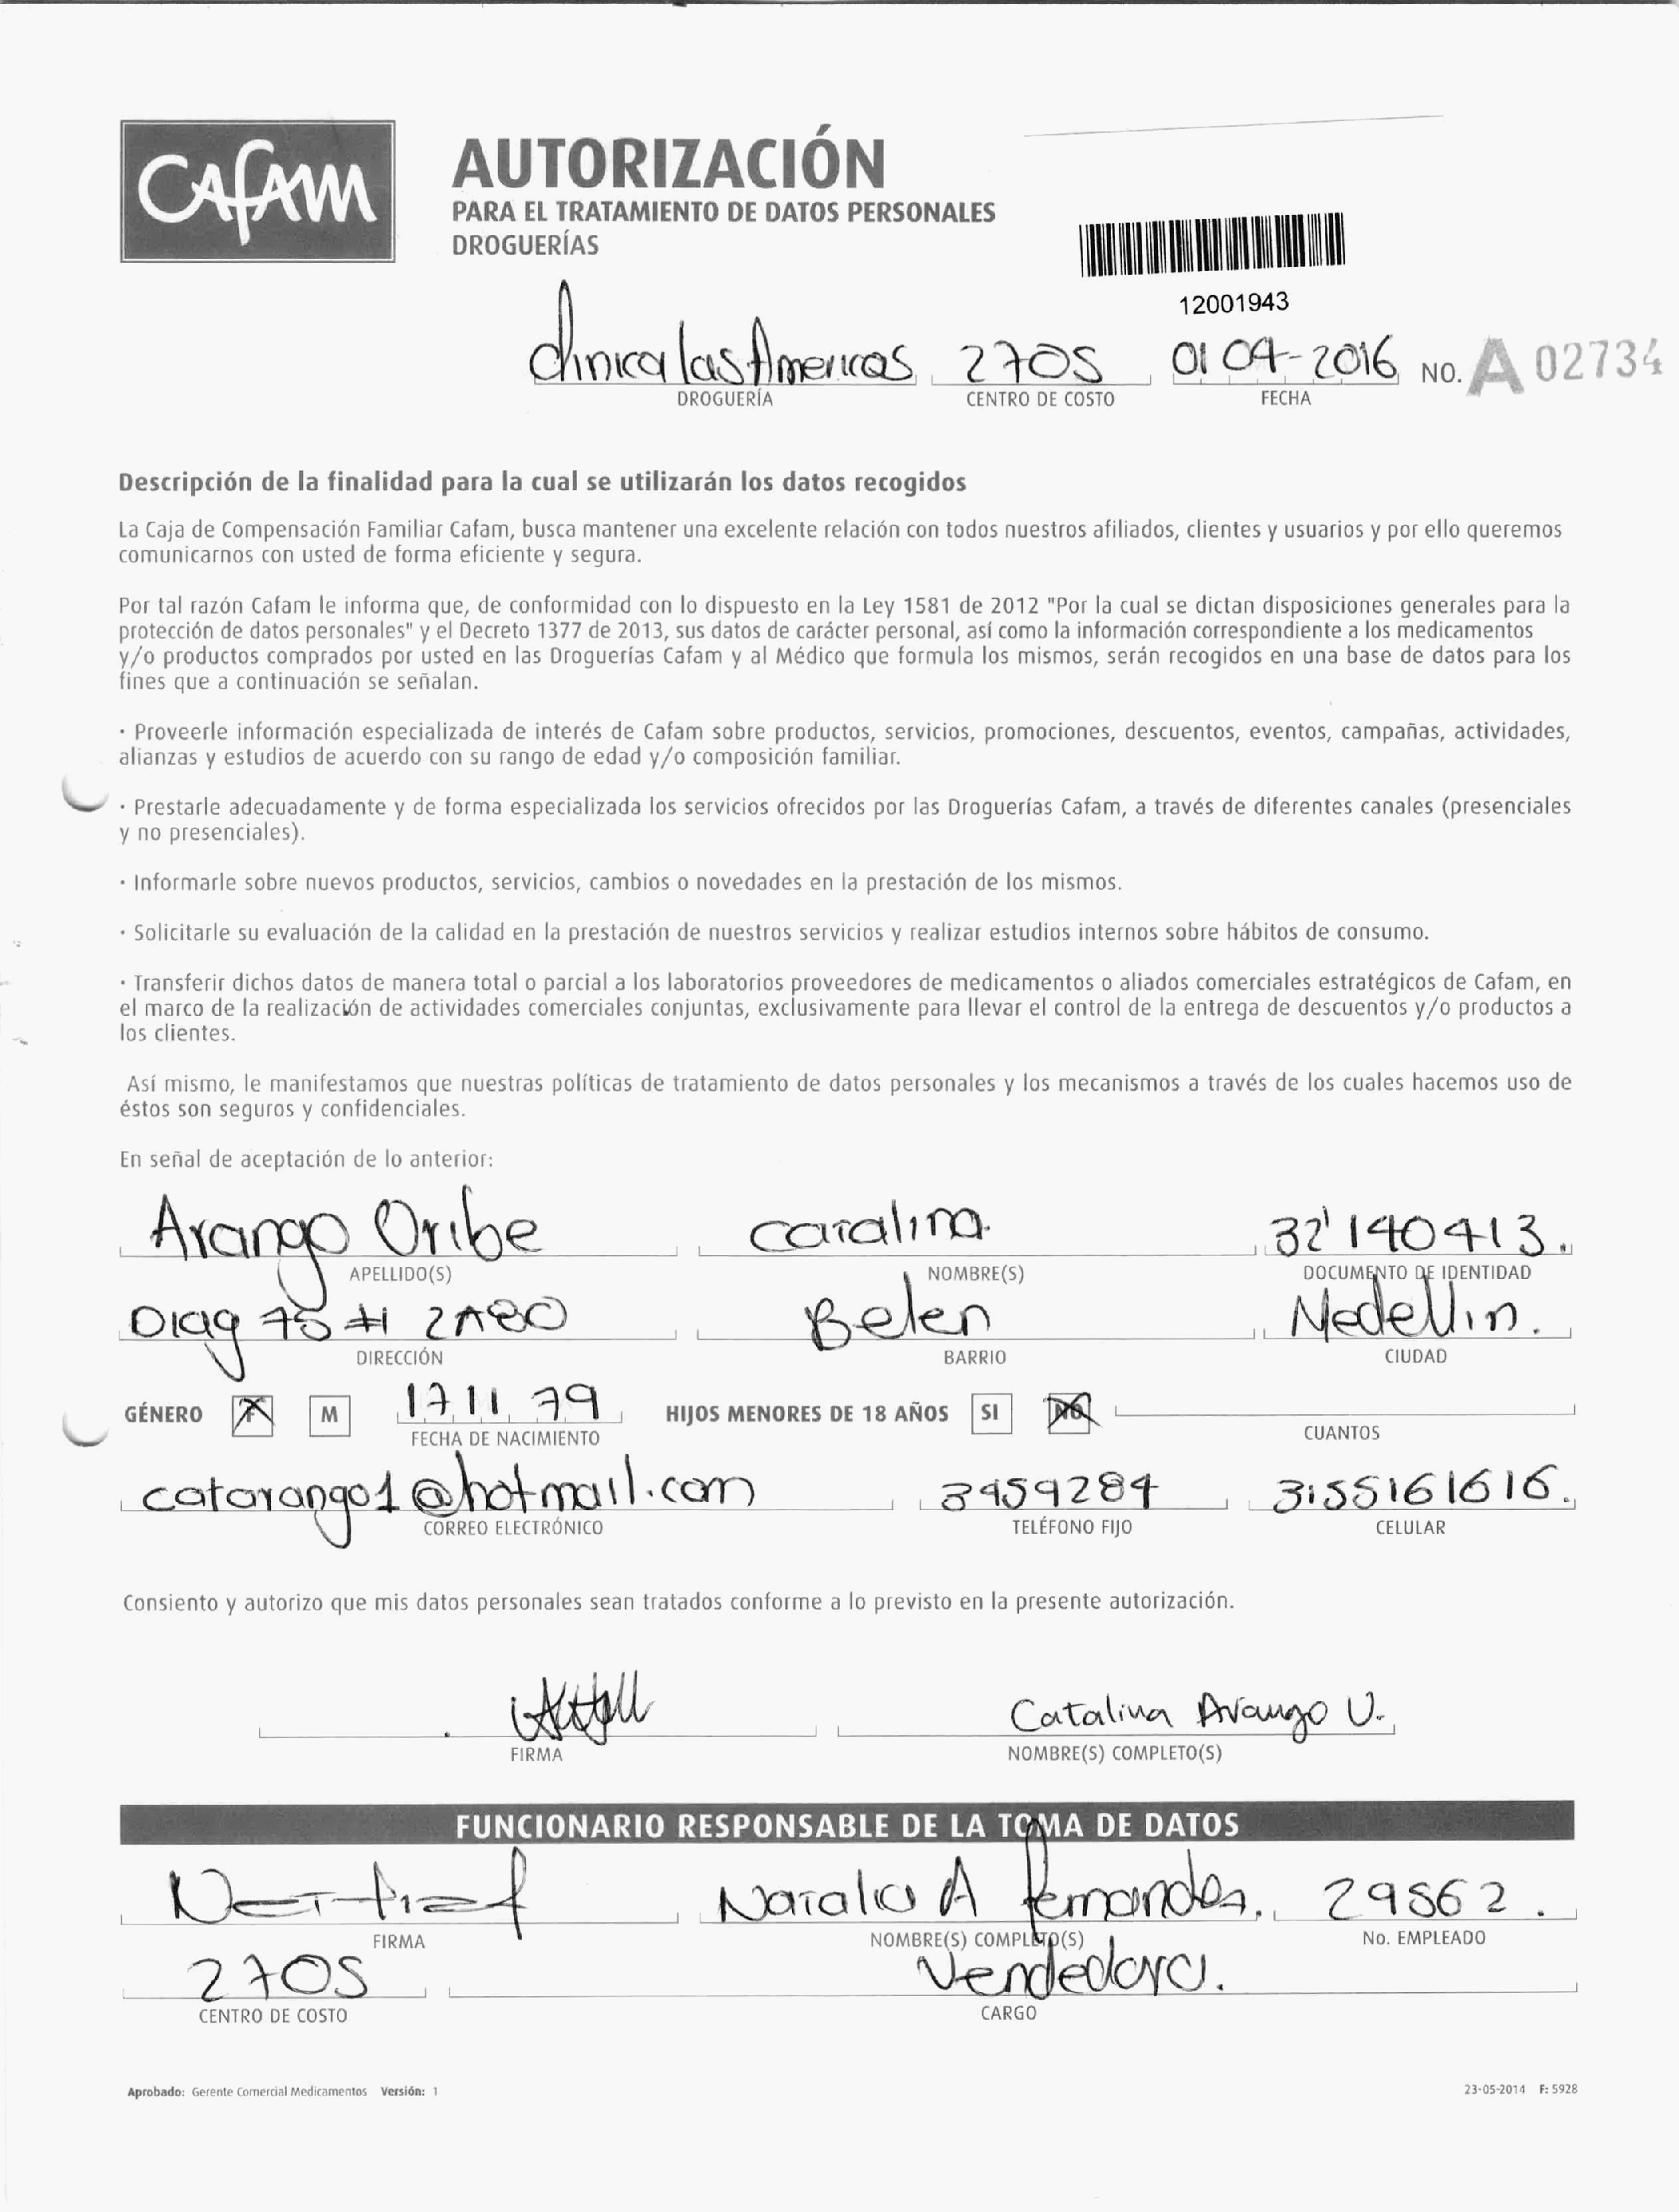 CAFAM
AUTORIZACIÓN
PARA EL TRATAMIENTO DE DATOS PERSONALES
DROGUERÍAS
12001943
clinica las Americas 2705 01 04-2016 NO. A 02734
DROGUERÍA CENTRO DE COSTO FECHA
Descripción de la finalidad para la cual se utilizarán los datos recogidos
La Caja de Compensación Familiar Cafam, busca mantener una excelente relación con todos nuestros afiliados, clientes y usuarios y por ello queremos
comunicarnos con usted de forma eficiente y segura.
Por tal razón Cafam le informa que, de conformidad con lo dispuesto en la Ley 1581 de 2012 "Por la cual se dictan disposiciones generales para la
protección de datos personales" y el Decreto 1377 de 2013, sus datos de carácter personal, así como la información correspondiente a los medicamentos
y/o productos comprados por usted en las Droguerías Cafam y al Médico que formula los mismos, serán recogidos en una base de datos para los
fines que a continuación se señalan.
· Proveerle información especializada de interés de Cafam sobre productos, servicios, promociones, descuentos, eventos, campañas, actividades,
alianzas y estudios de acuerdo con su rango de edad y/o composición familiar.
· Prestarle adecuadamente y de forma especializada los servicios ofrecidos por las Droguerías Cafam, a través de diferentes canales (presenciales
y no presenciales).
· Informarle sobre nuevos productos, servicios, cambios o novedades en la prestación de los mismos.
· Solicitarle su evaluación de la calidad en la prestación de nuestros servicios y realizar estudios internos sobre hábitos de consumo.
· Transferir dichos datos de manera total o parcial a los laboratorios proveedores de medicamentos o aliados comerciales estratégicos de Cafam, en
el marco de la realización de actividades comerciales conjuntas, exclusivamente para llevar el control de la entrega de descuentos y/o productos a
los clientes.
Así mismo, le manifestamos que nuestras políticas de tratamiento de datos personales y los mecanismos a través de los cuales hacemos uso de
éstos son seguros y confidenciales.
En señal de aceptación de lo anterior:
Arango Oribe catalina. 32'140413.
APELLIDO(S) NOMBRE(S) DOCUMENTO DE IDENTIDAD
Diag 75 # 2A80 Belen Medellin.
DIRECCIÓN BARRIO CIUDAD
GÉNERO F M 17 11 79 HIJOS MENORES DE 18 AÑOS SI NO
FECHA DE NACIMIENTO CUANTOS
catarango1@hotmail.com 3459284 3155161616.
CORREO ELECTRÓNICO TELÉFONO FIJO CELULAR
Consiento y autorizo que mis datos personales sean tratados conforme a lo previsto en la presente autorización.
Catalina Arango U.
FIRMA NOMBRE(S) COMPLETO(S)
FUNCIONARIO RESPONSABLE DE LA TOMA DE DATOS
Natalia A fernandes. 29562.
FIRMA NOMBRE(S) COMPLETO(S) No. EMPLEADO
2705 Vendedora.
CENTRO DE COSTO CARGO
Aprobado: Gerente Comercial Medicamentos Versión: 1 23-05-2014 F: 5928